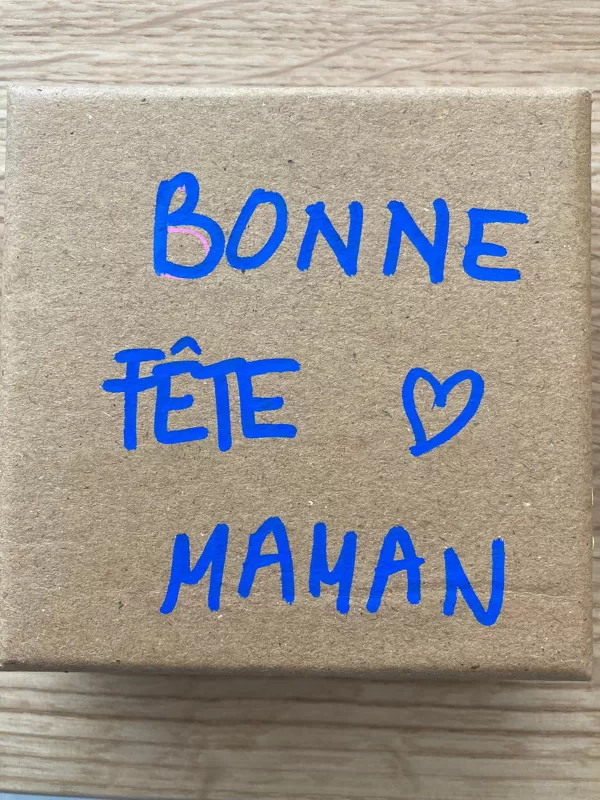 BONNE
FÊTE ♡
MAMAN